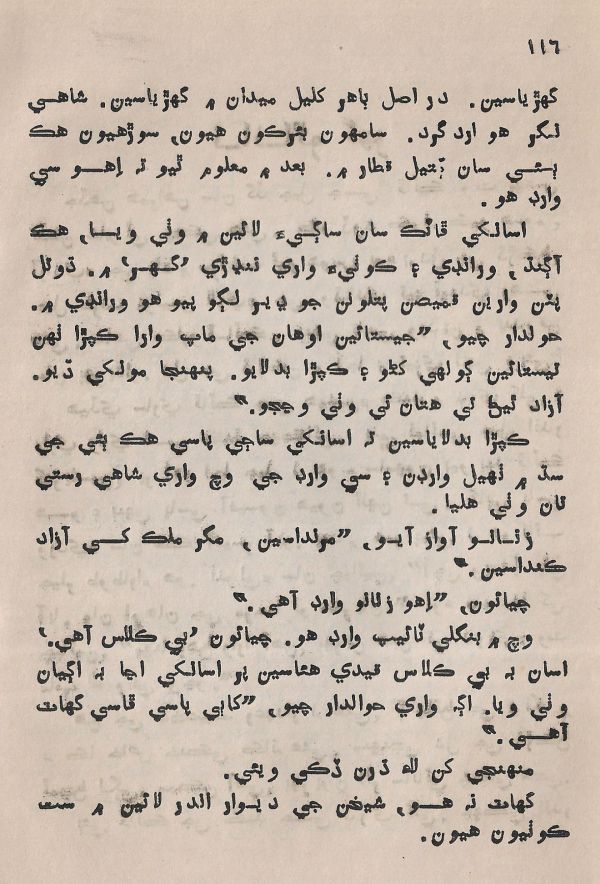 ١١٦
گهڙياسين. در اصل ٻاهر کليل ميدان ۾ گهڙياسين. شاهي
لنگر هو اردگرد. سامهون بئرڪون هيون، سوڙهيون هڪ
ٻئي سان ڳتيل قطار ۾. بعد ۾ معلوم ٿيو تہ اهو سي
وارڊ هو.
اسانکي ڦاٽڪ سان ساڳيءَ لائين ۾ وٺي ويا، هڪ
آڳنڌ، ورانڊي ۽ ڪوٺيءَ واري ننڍڙي ’گهر‘ ۾. ڌوتل
پٽن وارين قميصن پتلونن جو ڍير لڳو پيو هو ورانڊي ۾.
حولدار چيو، ”جيستائين اوهان جي ماپ وارا ڪپڙا ٺهن
تيستائين ڳولهي کڻو ۽ ڪپڙا بدلايو. پنهنجا مونکي ڏيو.
آزاد ٿيڻ تي هتان ئي وٺي وڃجو.“
ڪپڙا بدلاياسين تہ اسانکي ساڄي پاسي هڪ ٻئي جي
سڌ ۾ ٺهيل وارڊن ۽ سي وارڊ جي وچ واري شاهي رستي
تان وٺي هليا.
زنانو آواز آيو، ”مرنداسين، مگر ملڪ کي آزاد
ڪنداسين.“
چيائون، ”اهو زنانو وارڊ آهي.“
وچ ۾ بنگلي ٽائيپ وارڊ هو. چيائون ’بي ڪلاس آهي.‘
اسان بہ بي ڪلاس قيدي هئاسين پر اسانکي اڃا بہ اڳيان
وٺي ويا. اڳ واري حوالدار چيو، ”کاٻي پاسي ڦاسي گهاٽ
آهي.“
منهنجي کن لاءِ ڌڙن ڌڪي ويئي.
گهاٽ نہ هو، شيخن جي ديوار اندر لائين ۾ ست
ڪوٺيون هيون.